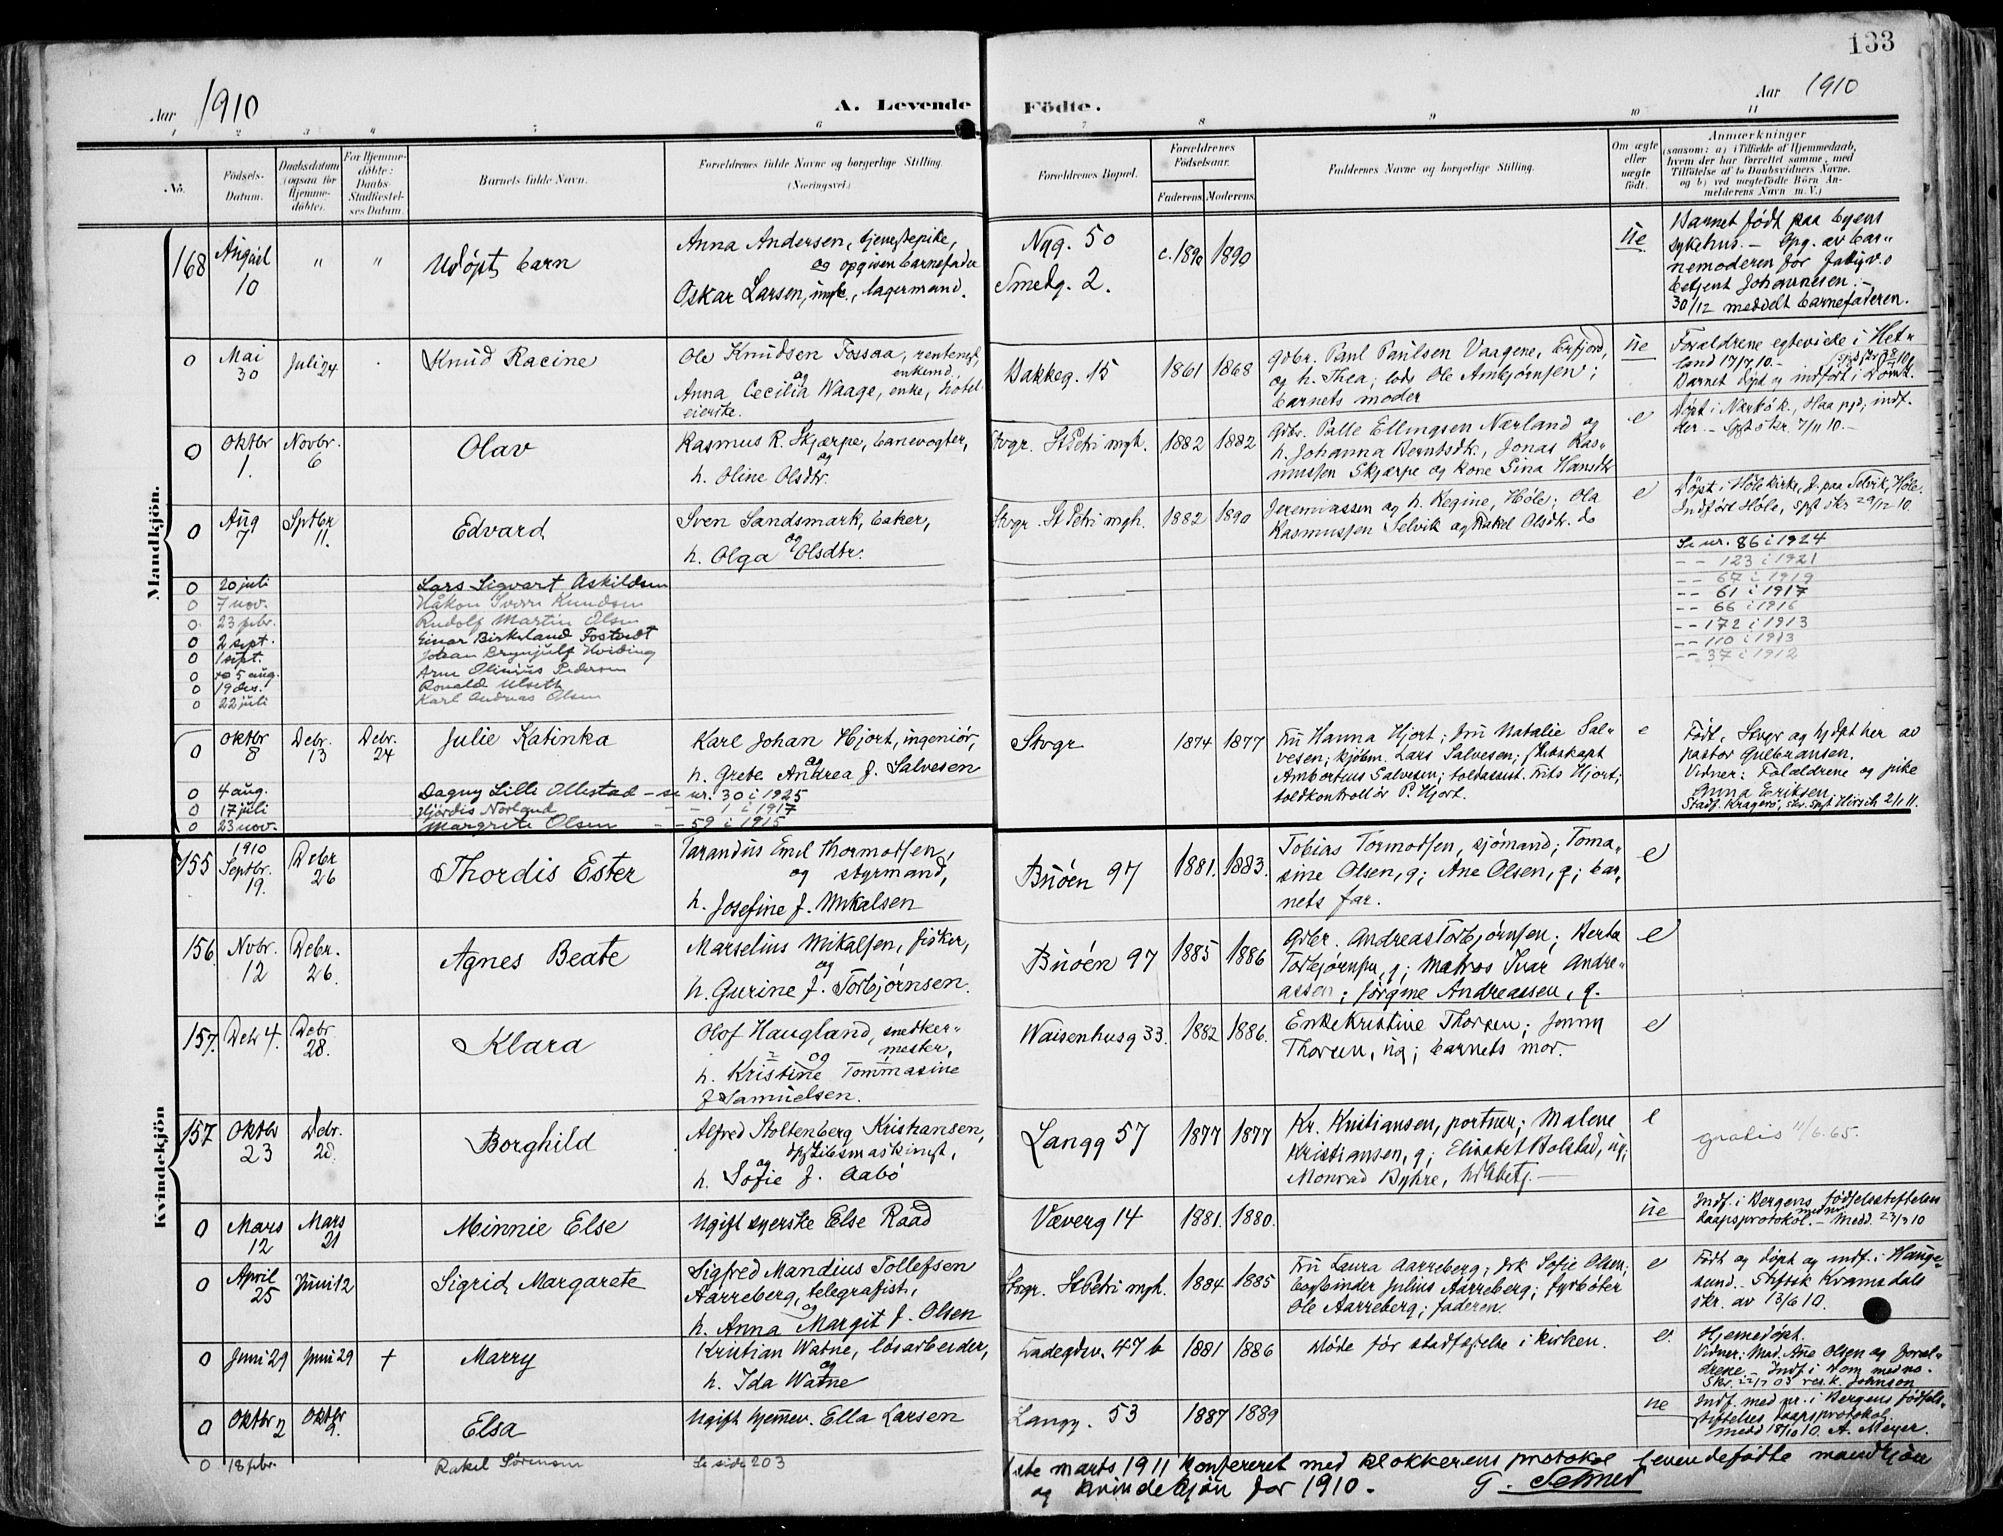 133
Aar 1910
A. Levende Födte.
Aar 1910
1 2 3 4 5 6 7 8 9 10 11
No.
Födsels-
Datum.
Daabsdatum
(ogsaa for
Hjemme-
döbte).
For Hjemme-
döbte:
Daabs-
Stadfæstel-
ses Datum.
Barnets fulde Navn.
Forældrenes fulde Navne og borgerlige Stilling.
(Næringsvei.)
Forældrenes Bopæl.
Forældrenes
Födselsaar.
Faderens Moderens
Faddernes Navne og borgerlige Stilling.
Om ægte
eller
uægte
födt.
Anmærkninger
(saasom: a) i Tilfælde af Hjemmedaab,
hvem der har forrettet samme, med
Tilföielse af to Daabsvidners Navne.
og b) ved uægtefödte Börn An-
melderens Navn m. V.)
Mandkjön.
168 August 10 " " Udøpt barn
Anna Andersen, tjenestepike,
og opgiven barnefader
Oskar Larsen, lagermand.
Nyg. 50
Smedg. 2.
c. 1890 1890
ue
Barnet født paa byens
sykehus. - Opg. av bar-
nemoderen for
betjent Johannesen. -
30/12 meddelt barnefaderen.
0 Mai 30 Juli 24 Knud Racine
Ole Knudsen Fossaa, rentenist,
enkemd
og
Anna Cecilia Waage, enke, hotel-
eierske.
Bakkeg. 15 1861 1868
Gdbr. Paul Paulsen Vaagene, Erfjord,
og h. Thea; lods Ole Ambjørnsen;
barnets moder
ue
Forældrene egteviede i Het-
land 17/7 10. -
Barnet døpt og indført i Domk.
0 Oktbr 1. Novbr. 6 Olav
Rasmus R. Skjærpe, banevogter,
og
h. Oline Olsdtr.
Stvgr. St Petri mgh. 1882 1882
Gdbr. Palle Ellingsen Nærland og
h. Johanna Berntsdtr., Jonas Ras-
mussen Skjærpe og kone Gina Hansdtr
e
Døpt i Nærbø k., Haa pgj., indf.
der. - Spr skr. 7/11 10. -
0 Aug 7 Sptbr 11. Edvard
Sven Sandsmark, baker,
og
h. Olga Olsdtr.
Stvgr. St Petri mgh. 1882 1890
Jeremiassen og h. Regine, Høle; Ola
Rasmussen Selvik og Rakel Olsdtr. do
e
Døpt i Høle kirke, f. paa Selvik, Høle.
Indført Høle, Spr skr 29/12 10.
0 20 juli Lars Sigvart Askildsen Se nr. 86 i 1924
0 7 nov. Håkon Sverre Knudsen - - 123 i 1921
0 23 febr. Rudolf Martin Olsen - - 67 i 1919
0 2 sept. Einar Birkeland Fostvedt - - 61 i 1917
0 1 sept. Johan Brynjulf Hviding - - 66 i 1916
0 5 aug. Arne Olinius Pedersen - - 172 i 1913
0 19 des. Ronald Ulseth - - 110 i 1913
0 22 juli Karl Andreas Olsen - - 37 i 1912
0 Oktbr 8 Debr. 13 Debr. 24 Julie Katinka
Karl Johan Hjort, ingeniør,
og
h. Grete Andrea f. Salvesen
Stvgr 1874 1877
Fru Hanna Hjort; Fru Natalie Sal-
vesen; kjøbm. Lars Salvesen; skibskapt
Ambortius Salvesen; toldassist. Frits Hjort;
toldkontrollør P. Hjort.
e
Født i Stvgr og hjdpt her av
pastor Gulbransen.
Vidner: Forældrene og pike
Anna Eriksen.
Stadf. Kragerø, skr. Spr Hirsch 2/1 11.
0 4 aug. Dagny Lilli Ollestad - se nr. 30 i 1925
0 17 juli Hjørdis Norland - - 1 i 1917
0 23 nov. Margrete Olsen - - 59 i 1915
Kvindekjön
155 1910 Septbr. 19. Debr 26 Thordis Ester
Tarandus Emil Thormodsen,
og styrmand,
h. Josefine f. Mikalsen
Buøen 97 1881. 1883.
Tobias Tormodsen, sjømand; Toma-
sine Olsen, g; Ane Olsen, g; bar-
nets far.
e
156. Novbr. 12 Debr. 26. Agnes Beate
Marselius Mikalsen, fisker,
og
h. Gurine f. Torbjørnsen.
Buøen 97 1885 1886
Gdbr. Andreas Torbjørnsen; Berta
Torbjørnsen, g; matros Ivar Andre-
assen; Jørgine Andreassen, g.
e
157. Debr 4. Debr. 28. Klara
Olof Haugland, snedker-
og mester,
h. Kristine Tommasine
f Samuelsen.
Waisenhusg 33. 1882 1886.
Enke Kristine Thorsen; Jenny
Thorsen, ug; barnets mor.
e
157 Oktbr 23 Debr. 28. Borghild
Alfred Stoltenberg Kristiansen,
og
h. Sofie f. Aabø
Langg 57 1877 1877
Kr. Kristiansen, portner; Malene
Kristiansen, g; Elisabet Bolstad, ug;
Monrad Byhre, -
e
gratis 11/6.65.
0 Mars 12 Mars 21 Minnie Else
Ugift syerske Else Raad
Væverg 14 1881. 1880.
ue
Indf. i Bergens fødselsstiftelses
daapsprotokol. - Medd. 23/3 10
0 April 25 Juni 12 Sigrid Margarete
Sigfred Mandius Tollefsen
Aarreberg, telegrafist,
og
h. Anna Margit f. Olsen
Stvgr. St Petri mgh. 1884 1885
Fru Laura Aarreberg; frk Sofie Olsen;
bogbinder Julius Aarreberg; fyrbøter
Ole Aarreberg; faderen.
e
Født og døpt og indf. i Hauge-
sund. Stiftsk Kvamsdals
skr. av 13/6 10.
0 Juni 29 Juni 29 + Marry
Kristian Watne, løsarbeider,
og
h. Ida Watne
Ladegdsv. 47 b 1881 1886
Døde før stadfæstelse i kirken.
e.
Hjemedøpt.
Vidner: Mad. Ane Olsen og foræl-
drene - Indf. i Dom med no.
res. k. Johnson
0 Oktbr 2 Oktbr 9. Elsa
Ugift hjemmev. Ella Larsen
Langg. 53 1887 1889
ue
Indf. med nr. i Bergens fødsels-
stiftelses daapsprotokol.
medd 18/10 10. A. Meyer.
0 18 febr. Rakel Sørensen Se side 203
1ste marts 1911 konfereret med klokkerens protokol levendefødte mandkjøn
og kvindekjøn for 1910. -